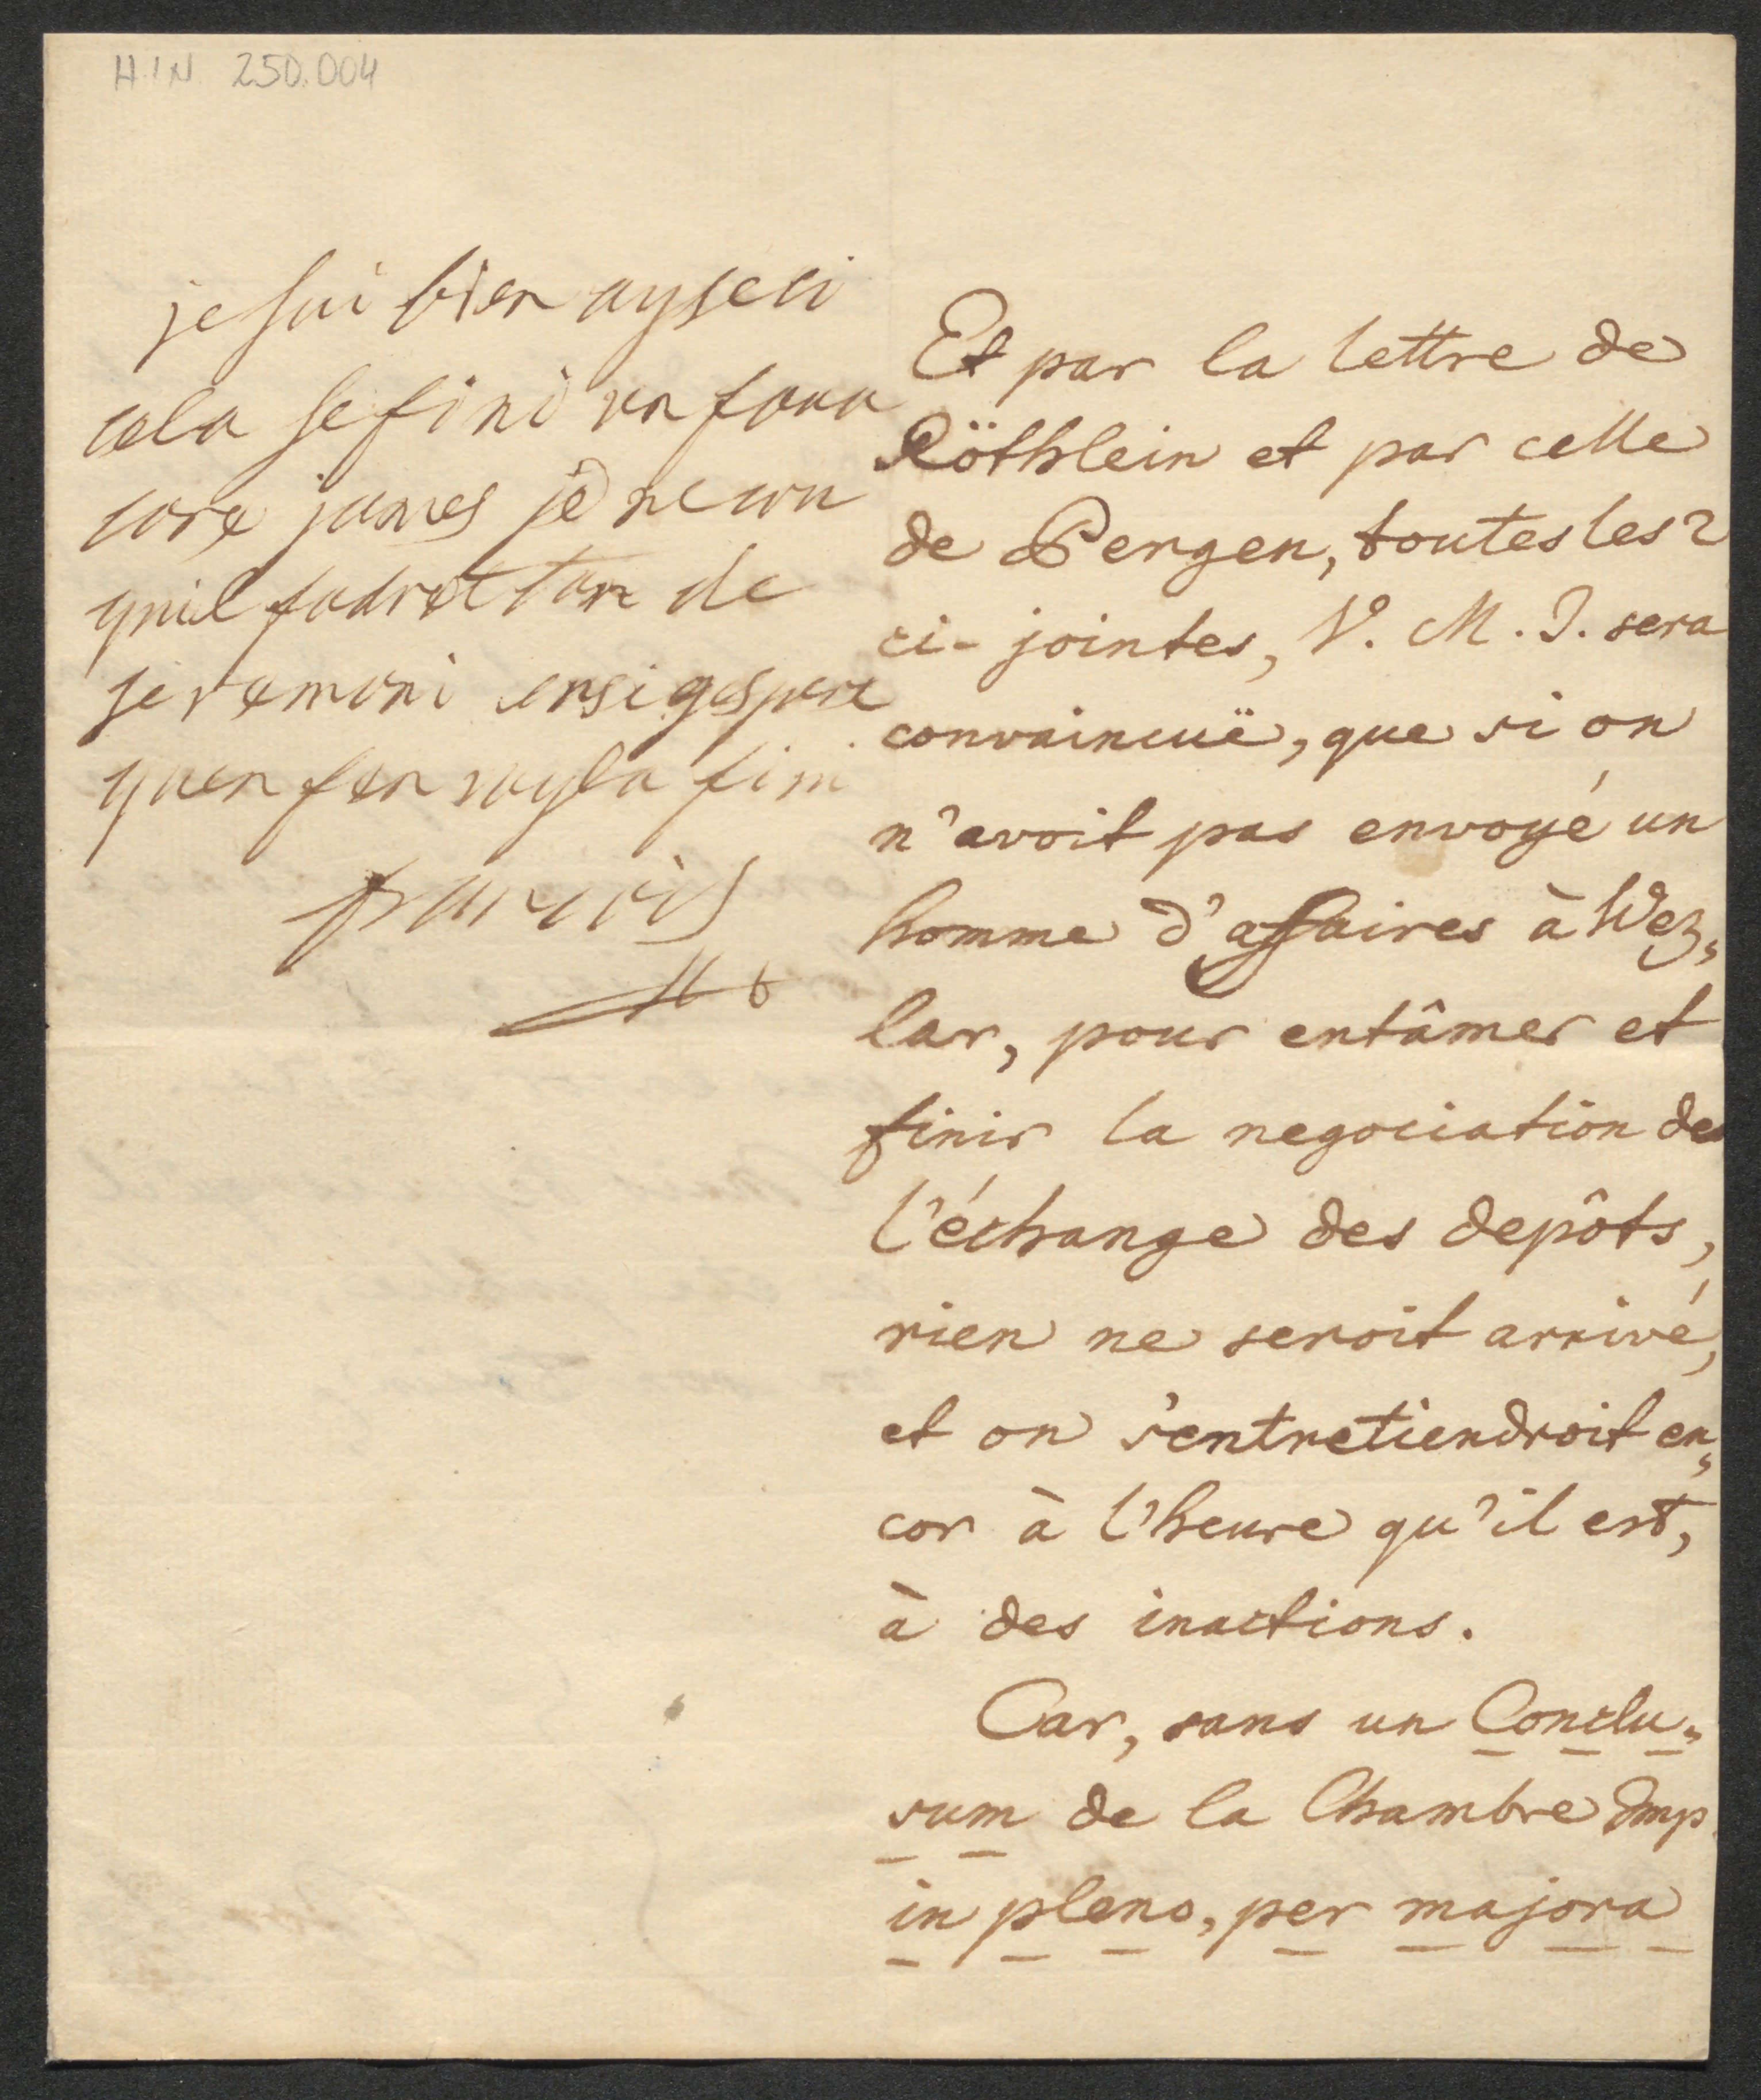 H.I.N. 250.004
je sui bien ayse si
cela se fini
core james je ne cru
quil fodret tan de
seremoni ensi gespere
quen fen voyla fini
françois
Et par la lettre de
Röthlein et par celle
de Pergen, toutes les 2
ci-jointes, V. M. I. sera
convaincuë, que si on
n'avoit pas envoyé un
homme d'affaires à Wez„
lar, pour entâmer et
finir la negociation de
l'échange des depôts,
rien ne seroit arrivé,
et on s'entretiendroit en„
cor à l'heure qu'il est,
à des inactions.
Car, sans un Conclu„
sum de la Chambre Imp.
in pleno, per majora